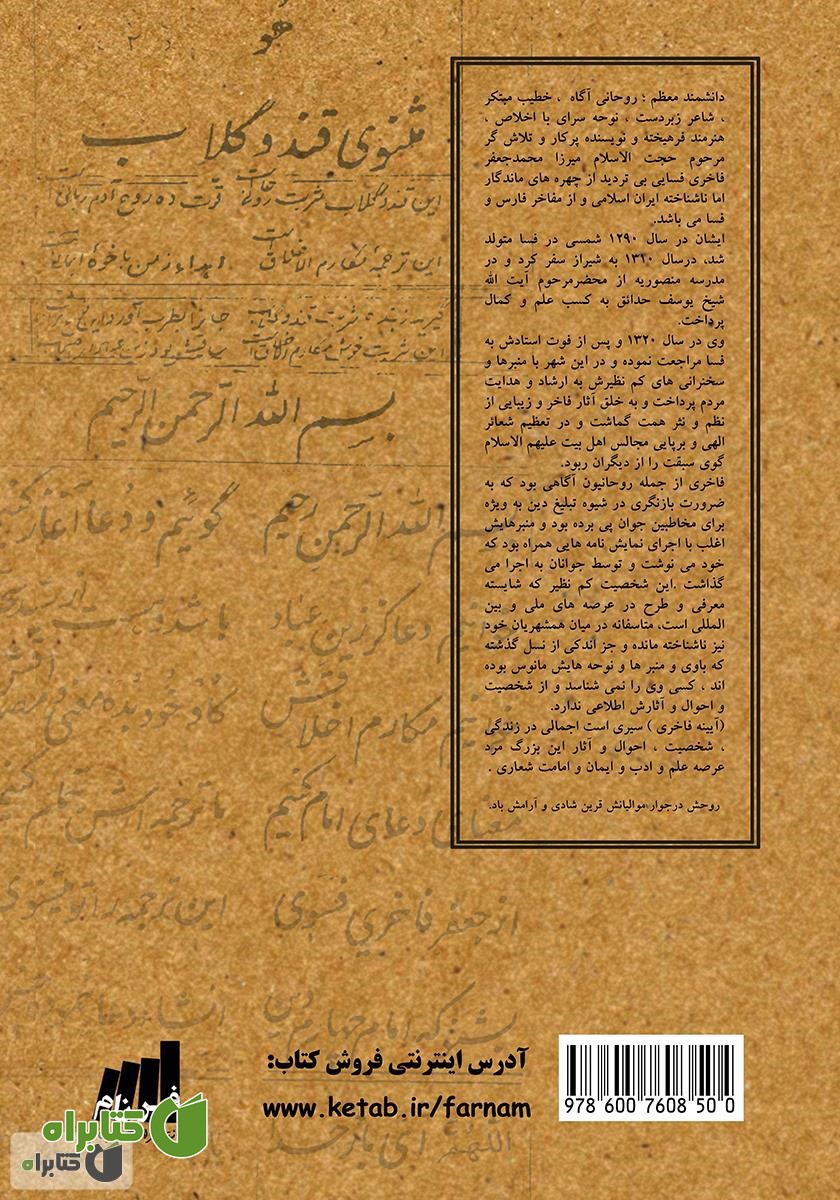 هُو
مثنوی قند و گلاب
بسم الله الرّحمن الرّحیم
دانشمند معظم ؛ روحانی آگاه ، خطیب مبتکر
، شاعر زبردست ، نوحه سرای با اخلاص ،
هنرمند فرهیخته و نویسنده پرکار و تلاش گر
مرحوم حجت الاسلام میرزا محمدجعفر
فاخری فسایی بی تردید از چهره های ماندگار
اما ناشناخته ایران اسلامی و از مفاخر فارس و
فسا می باشد.
ایشان در سال ۱۲۹۰ شمسی در فسا متولد
شد، درسال ۱۳۱۰ به شیراز سفر کرد و در
مدرسه منصوریه از محضرمرحوم آیت الله
شیخ یوسف حدائق به کسب علم و کمال
پرداخت.
وی در سال ۱۳۲۰ و پس از فوت استادش به
فسا مراجعت نموده و در این شهر با منبرها و
سخنرانی های کم نظیرش به ارشاد و هدایت
مردم پرداخت و به خلق آثار فاخر و زیبایی از
نظم و نثر همت گماشت و در تعظیم شعائر
الهی و برپایی مجالس اهل بیت علیهم الاسلام
گوی سبقت را از دیگران ربود.
فاخری از جمله روحانیون آگاهی بود که به
ضرورت بازنگری در شیوه تبلیغ دین به ویژه
برای مخاطبین جوان پی برده بود و منبرهایش
اغلب با اجرای نمایش نامه هایی همراه بود که
خود می نوشت و توسط جوانان به اجرا می
گذاشت .این شخصیت کم نظیر که شایسته
معرفی و طرح در عرصه های ملی و بین
المللی است، متاسفانه در میان همشهریان خود
نیز ناشناخته مانده و جز اندکی از نسل گذشته
که باوی و منبر ها و نوحه هایش مانوس بوده
اند ، کسی وی را نمی شناسد و از شخصیت
و احوال و آثارش اطلاعی ندارد.
(آیینه فاخری ) سیری است اجمالی در زندگی
، شخصیت ، احوال و آثار این بزرگ مرد
عرصه علم و ادب و ایمان و امامت شعاری .
روحش درجوار موالیانش قرین شادی و آرامش باد.
از جعفر فاخری فسوی
این ترجمه را تو مثنوی
آدرس اینترنتی فروش کتاب:
www.ketab.ir/farnam
978 600 7608 50 0
فرنام
کتابراه
کتابراه